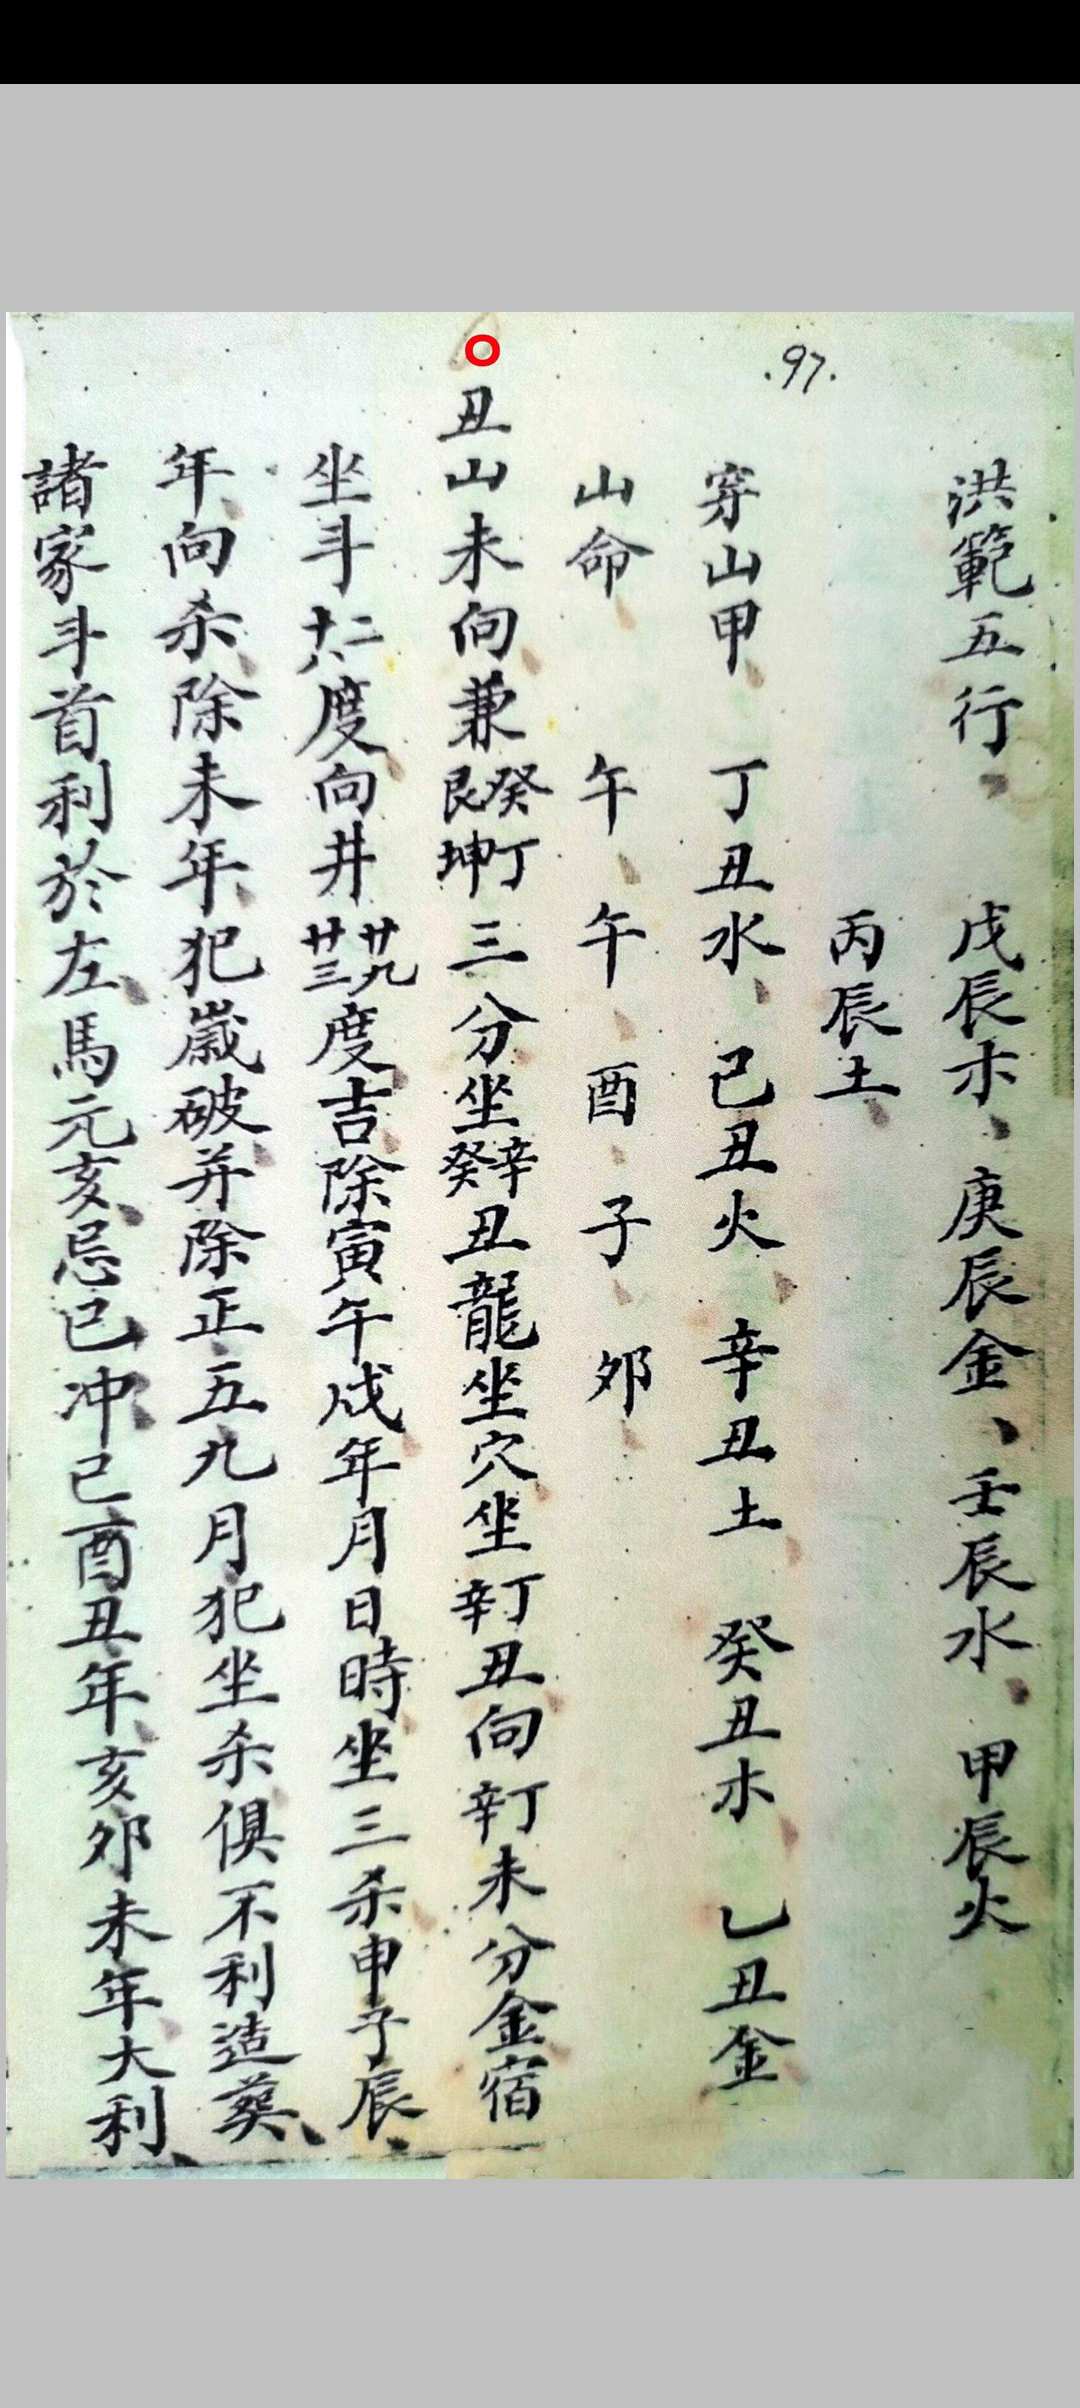 .97.
洪範五行、 戊辰木、庚辰金、壬辰水、甲辰火
丙辰土、
穿山甲、 丁丑水、己丑火、辛丑土、癸丑木、乙丑金、
山命、 午、午、酉、子、夘、
丑山未向兼癸丁艮坤三分坐辛癸丑龍坐穴坐丁辛丑向丁辛未分金宿
坐斗二十八度向井廿九廿三度吉除寅午戌年月日時坐三杀申子辰、
年、向杀、除未年、犯嵗破、并除正五九月犯坐杀俱不利造葬、
諸家斗首利於左、馬元亥、忌巳冲、巳酉丑年、亥夘未年大利、